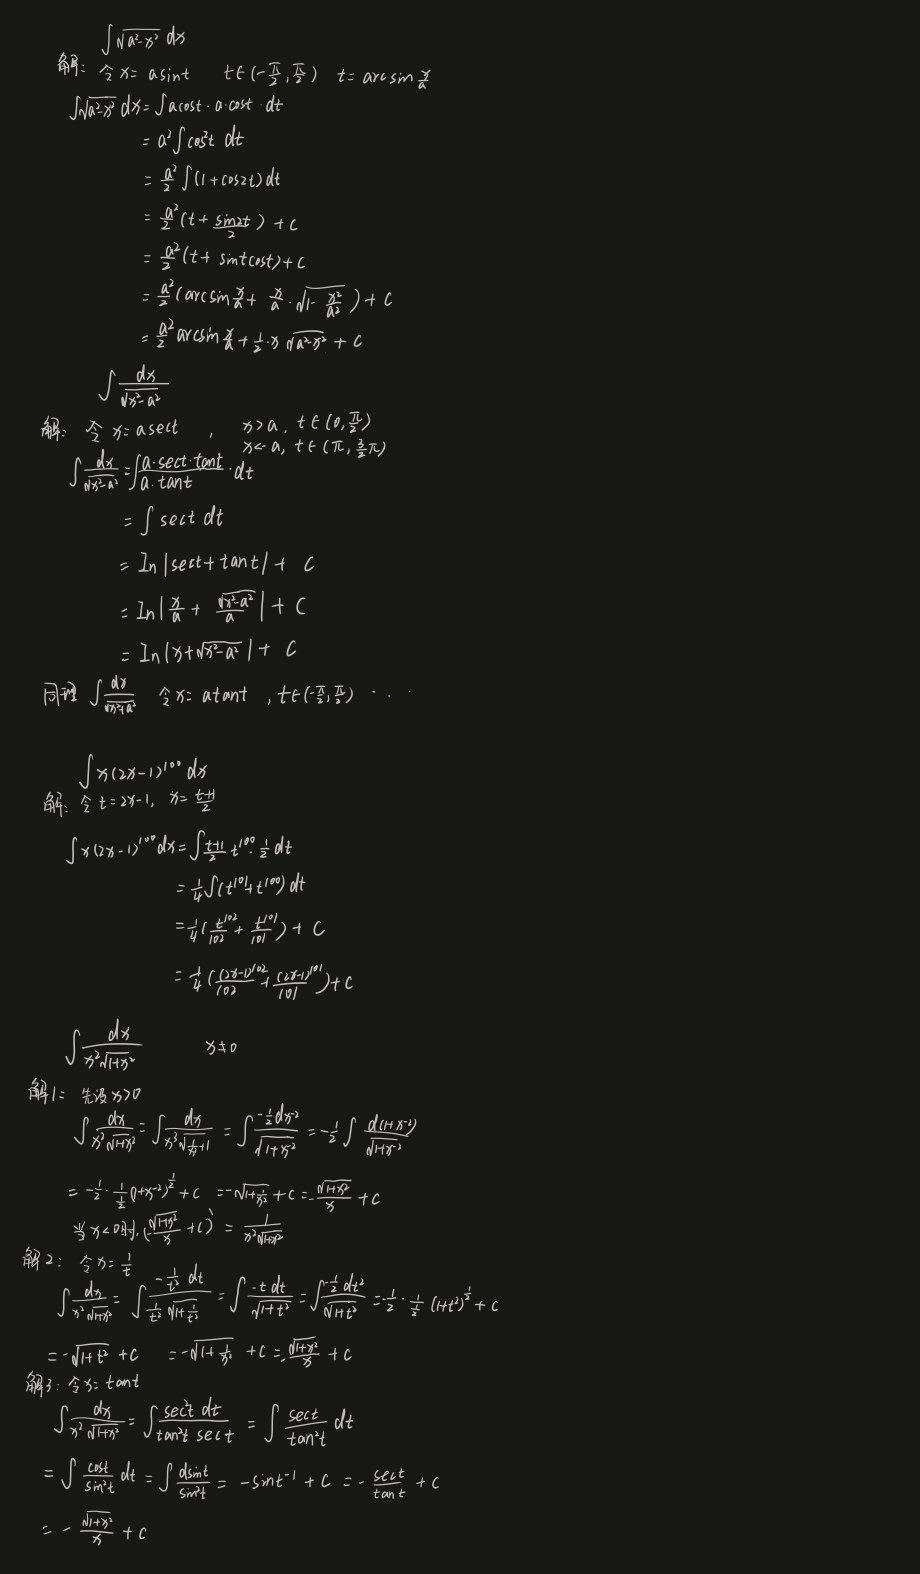 ∫√(a²-x²) dx
解: 令x=asint t∈(-π/2,π/2) t=arcsin x/a
∫√(a²-x²) dx=∫acost·a·cost·dt
=a²∫cos²t dt
=a²/2 ∫(1+cos2t)dt
=a²/2 (t+sin2t/2)+C
=a²/2 (t+sintcost)+C
=a²/2 (arcsin x/a + x/a·√(1-x²/a²))+C
=a²/2 arcsin x/a + 1/2·x √(a²-x²)+C
∫dx/√(x²-a²)
解: 令x=asect, x>a, t∈(0,π/2)
x<-a, t∈(π,3/2π)
∫dx/√(x²-a²)=∫a·sect·tant/a·tant·dt
=∫sect dt
=In|sect+tant|+C
=In|x/a+√(x²-a²)/a|+C
=In|x+√(x²-a²)|+C
同理 ∫dx/√(x²+a²) 令x=atant, t∈(-π/2,π/2) ····
∫x(2x-1)¹⁰⁰dx
解: 令t=2x-1, x=(t+1)/2
∫x(2x-1)¹⁰⁰dx=∫(t+1)/2 t¹⁰⁰·1/2 dt
=1/4∫(t¹⁰¹+t¹⁰⁰)dt
=1/4(t¹⁰²/102+t¹⁰¹/101)+C
=1/4((2x-1)¹⁰²/102+(2x-1)¹⁰¹/101)+C
∫dx/x²√(1+x²) x≠0
解1: 先设x>0
∫dx/x²√(1+x²)=∫dx/x³√(1/x²+1)=∫-1/2dx⁻²/√(1+x⁻²)=-1/2∫d(1+x⁻²)/√(1+x⁻²)
=-1/2·1/(1/2)(1+x⁻²)^(1/2)+C =-√(1+1/x²)+C=-√(1+x²)/x+C
当x<0时,(-√(1+x²)/x+C)'=1/x²√(1+x²)
解2: 令x=1/t
∫dx/x²√(1+x²)=∫-1/t² dt/(1/t²√(1+1/t²))=∫-t dt/√(1+t²)=∫-1/2dt²/√(1+t²)=-1/2·1/(1/2)(1+t²)^(1/2)+C
=-√(1+t²)+C =-√(1+1/x²)+C=-√(1+x²)/x+C
解3: 令x=tant
∫dx/x²√(1+x²)=∫sec²t dt/tan²t sect=∫sect/tan²t dt
=∫cost/sin²t dt=∫dsint/sin²t=-sint⁻¹+C=-sect/tant+C
=-√(1+x²)/x+C